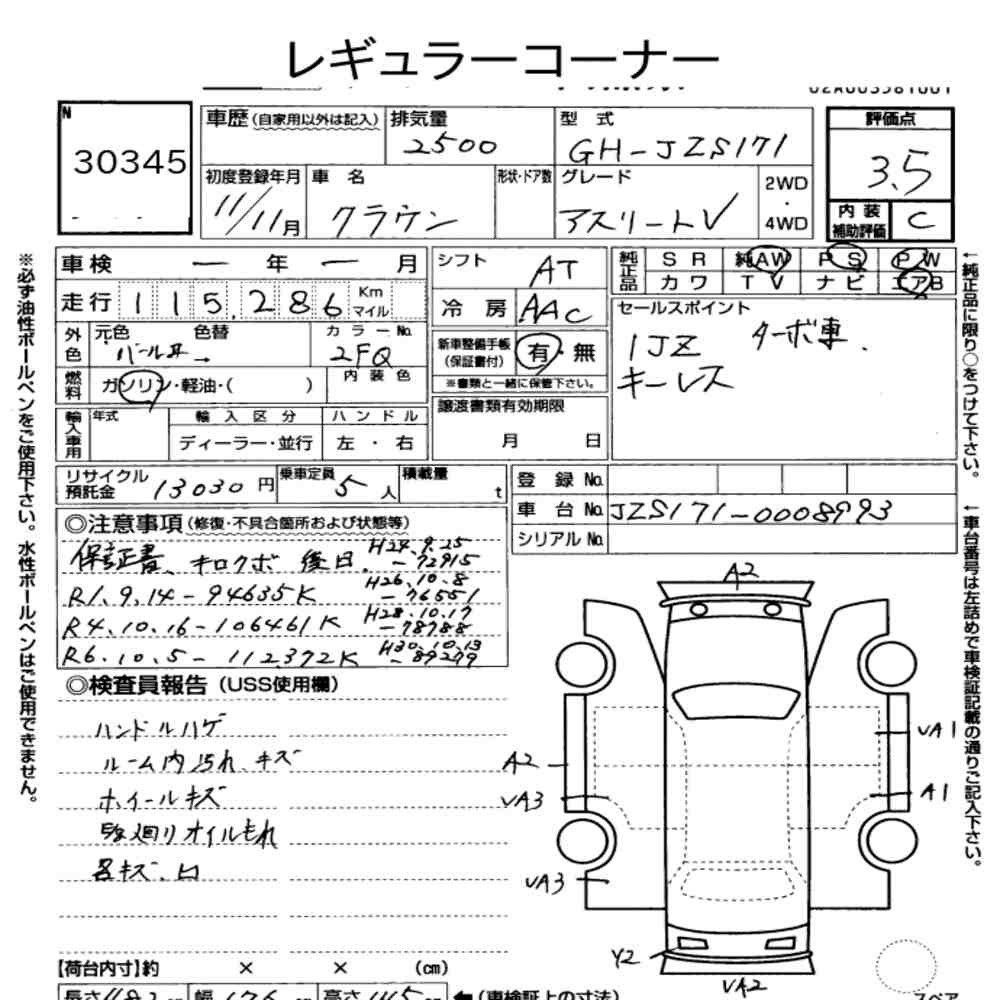 レギュラーコーナー
N
30345
車歴(自家用以外は記入) 排気量 2500 型式 GH-JZS171
評価点
3.5
内装補助評価 C
初度登録年月 11/11月 車名 クラウン 形状・ドア数 グレード アスリートV 2WD・4WD
車検 ー年ー月
走行 115,286 Km マイル
シフト AT
冷房 AAC
純正品 SR 純AW PS PW
カワ TV ナビ エアB
セールスポイント
1JZ ターボ車.
キーレス
外色 元色 パールⅡ 色替 → カラーNo. 2FQ
燃料 ガソリン・軽油・( ) 内装色
新車整備手帳(保証書付) 有・無
※書類と一緒に保管下さい。
輸入車用 年式 輸入区分 ハンドル
ディーラー・並行 左・右
譲渡書類有効期限
月 日
リサイクル預託金 13030円 乗車定員 5人 積載量 t
登録No.
車台No. JZS171-0008993
シリアルNo.
◎注意事項(修復・不具合箇所および状態等)
保証書、キロクボ 後日. H24.9.25 -72915
R1.9.14-94635K H26.10.8 -76551
R4.10.16-106461K H28.10.17 -78788
R6.10.5-112372K H30.10.13 -89279
◎検査員報告(USS使用欄)
ハンドルハゲ
ルーム内汚れ、キズ
ホイールキズ
駆廻りオイルもれ
各キズ、凹
A2
VA1
A2
A1
VA3
VA3
Y2
VA2
【荷台内寸】約 × × (cm)
長さ 482 幅 176 高さ 145 ←(車検証上の寸法)
スペア
※必ず油性ボールペンをご使用下さい。水性ボールペンはご使用できません。
←純正品に限り○をつけて下さい。
←車台番号は左詰めで車検証記載の通りご記入下さい。